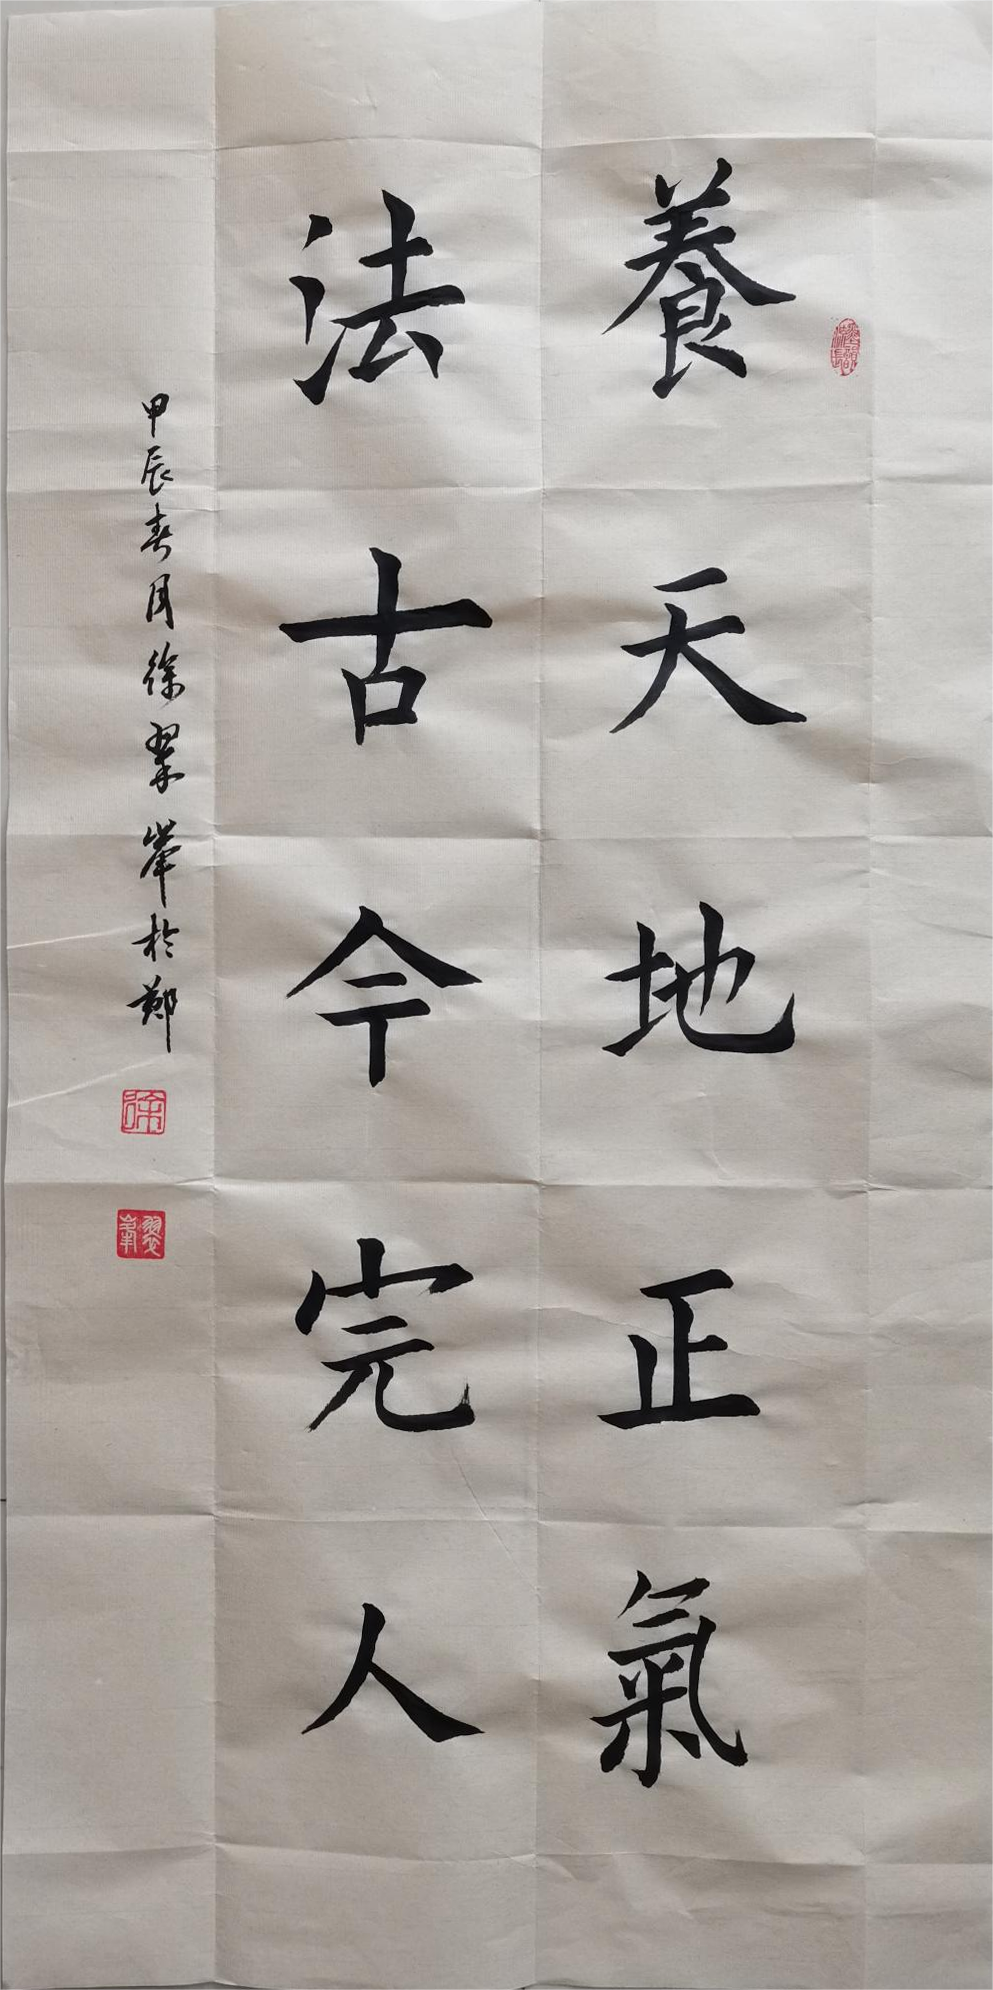 養天地正氣
法古今完人
甲辰春月徐翠峯於鄭
徐
翠峯